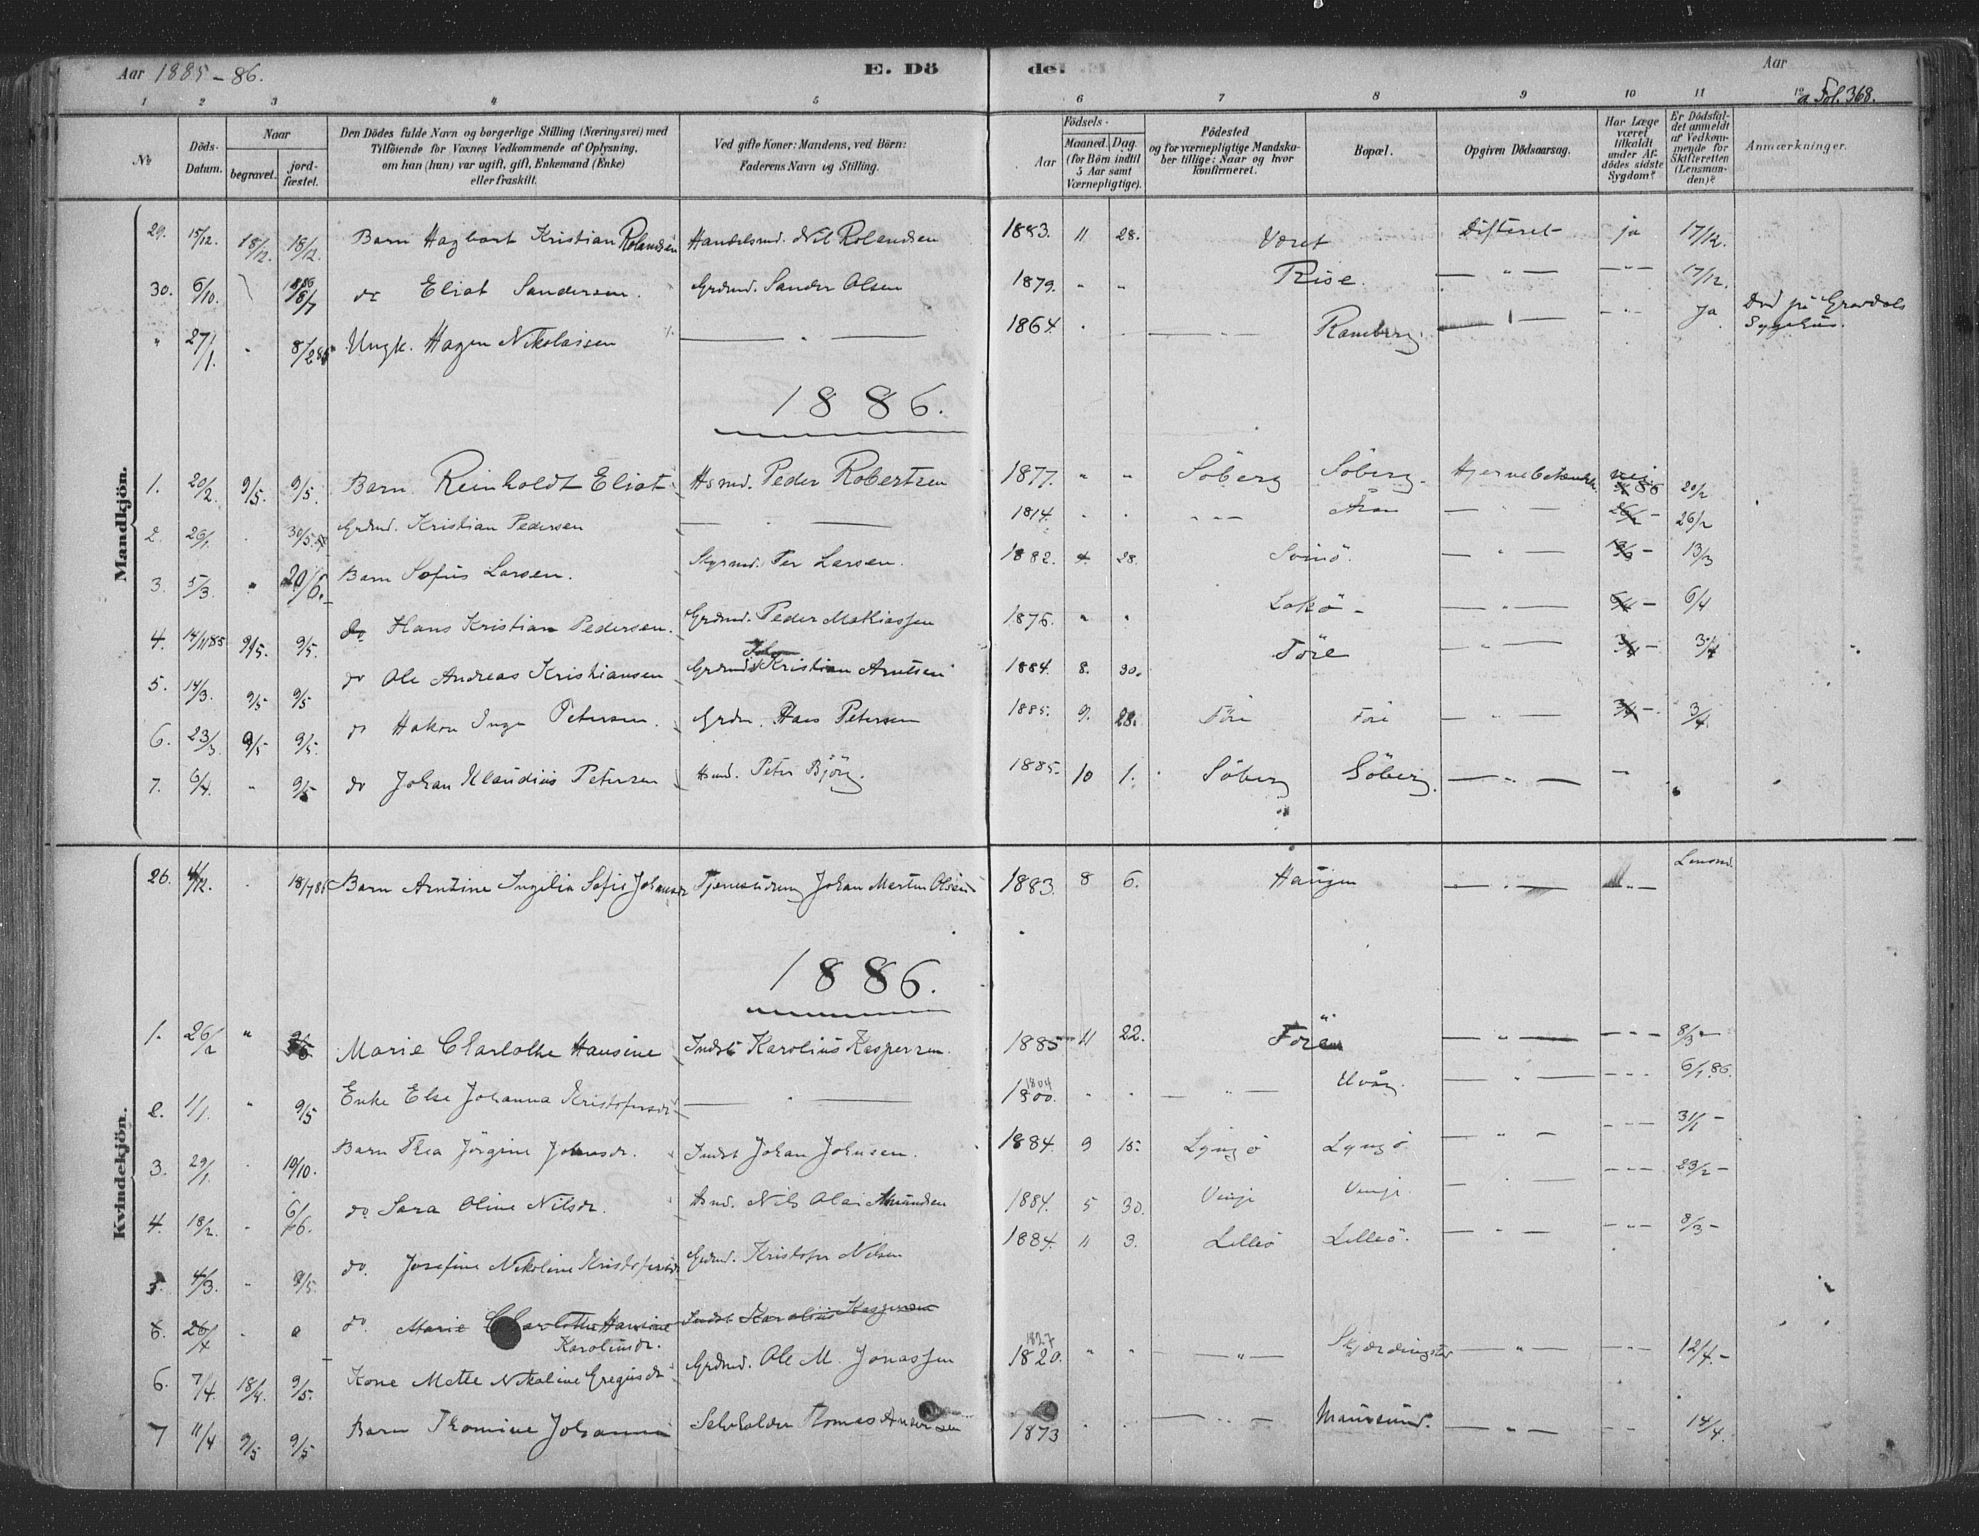 Aar 1885-86. E. Dö de. Aar
a Fol. 368.
1 2 3 4 5 6 7 8 9 10 11 12
No Döds-Datum. Naar begravet. jordfæstet. Den Dödes fulde Navn og borgerlige Stilling (Næringsvei) med Tilföiende for Voxnes Vedkommende af Oplysning, om han (hun) var ugift, gift, Enkemand (Enke) eller fraskilt. Ved gifte Koner: Mandens, ved Börn: Faderens Navn og Stilling. Födsels- Aar Maaned. Dag. (for Börn indtil 5 Aar samt Værnepligtige). Födested og for værnepligtige Mandskaber tillige: Naar og hvor konfirmeret. Bopæl. Opgiven Dödsaarsag. Har Læge været tilkaldt under Afdödes sidste Sygdom? Er Dödsfaldet anmeldt af Vedkommende for Skifteretten (Lensmanden)? Anmærkninger.
Mandkjön.
29. 15/12. 18/12. 18/12. Barn Hagbart Kristian Rolandsen Handelsmd. Nil Rolandsen 1883. 11 28. Været Difteret ja 17/12.
30. 6/10. 8/7 do Eliot Sandersen. Grdmd. Sander Olsen 1879. " " Rise. — " — — " — 17/12.
" 27/1. " 8/2 Ungk. Hagen Nikolaisen — " — 1864. Ramberg. ja Död på Gravdals Sygehus.
1886.
1. 20/2. 9/5. 9/5. Barn Reinholdt Eliot Hsmd. Peder Robertsen 1877. " " Söberg Söberg. Hjernebetændelse nei 20/2
2. 26/1. " 30/5. Grdmd. Kristian Pedersen — " — 1814. " " — " — — " — 26/2
3. 5/3. " 20/6. Barn Sofus Larsen. Per Larsen. 1882. 4. 28. Svinö. — " — 13/3
4. 14/11 85 9/5. 9/5. do Hans Kristian Pedersen. Grdmd. Peder Mathiassen 1876. " " Lokö — " — 6/4
5. 14/3. 9/5 9/5 do Ole Andreas Kristiansen Grdmd. Kristian Arntsen 1884. 8. 30. Töre — " — 3/4
6. 23/3. 9/5 9/5. do Hakon Inge Petersen. Grdm. Hans Petersen 1885. 9. 28. Före Före — " — 3/4.
7. 6/4. " 9/5 do Johan Klaudius Petersen Hsmd. Peter Björg. 1885. 10 1. Söberg Söberg. — " —
Kvindekjön.
26. 4/12. " 18/7 86 Barn Arntine Ingelia Sofie Johansdr Tjenestdreng Johan Martin Olsen 1883. 8 6. Haugen — " — — " — Lensmd.
1886.
1. 26/2 " Marie Charlothe Hansine Indst Karolius Kaspersen. 1885 11 22. Före — " — — " — 8/3 —
2. 1/1. " 9/5 Enke Else Johanna Kristofersdr — " — 1804 1800. " " — " — Uvåg. — " — — " — 6/1 86.
3. 29/1. " 19/10. Barn Thea Jörgine Johnsdr. Indst Johan Johnsen. 1884. 9 15. Lyngö Lyngö. — " — — " — 31/1 —
4. 18/2. " 6/6. do Sara Oline Nilsdr. Hsmd. Nils Olai Amundsen 1884. 5 30. Vinje Vinje. — " — — " — 23/2 —
5. 4/3. " 9/5. do. Josefine Nikoline Kristofersdr Grdmd. Kristofer Nilsen 1884. 11 3. Lilleö Lilleö. — " — — " — 8/3 —
6. 26/4 " do Marie Charlotte Hansine Karolinsdr. Indst Karolius Kaspersen
6. 7/4. 18/4. 9/5. Kone Mette Nikoline Gregusdr Grdmd. Ole M. Jonassen 1827 1820. " " — " — Skjærdingstø — " — 12/4. —
7 11/4 9/5 9/5 Barn Thomine Johanna Selveholder Thomas Andersen 1873 " " — " — Maursund. — " — 14/4.